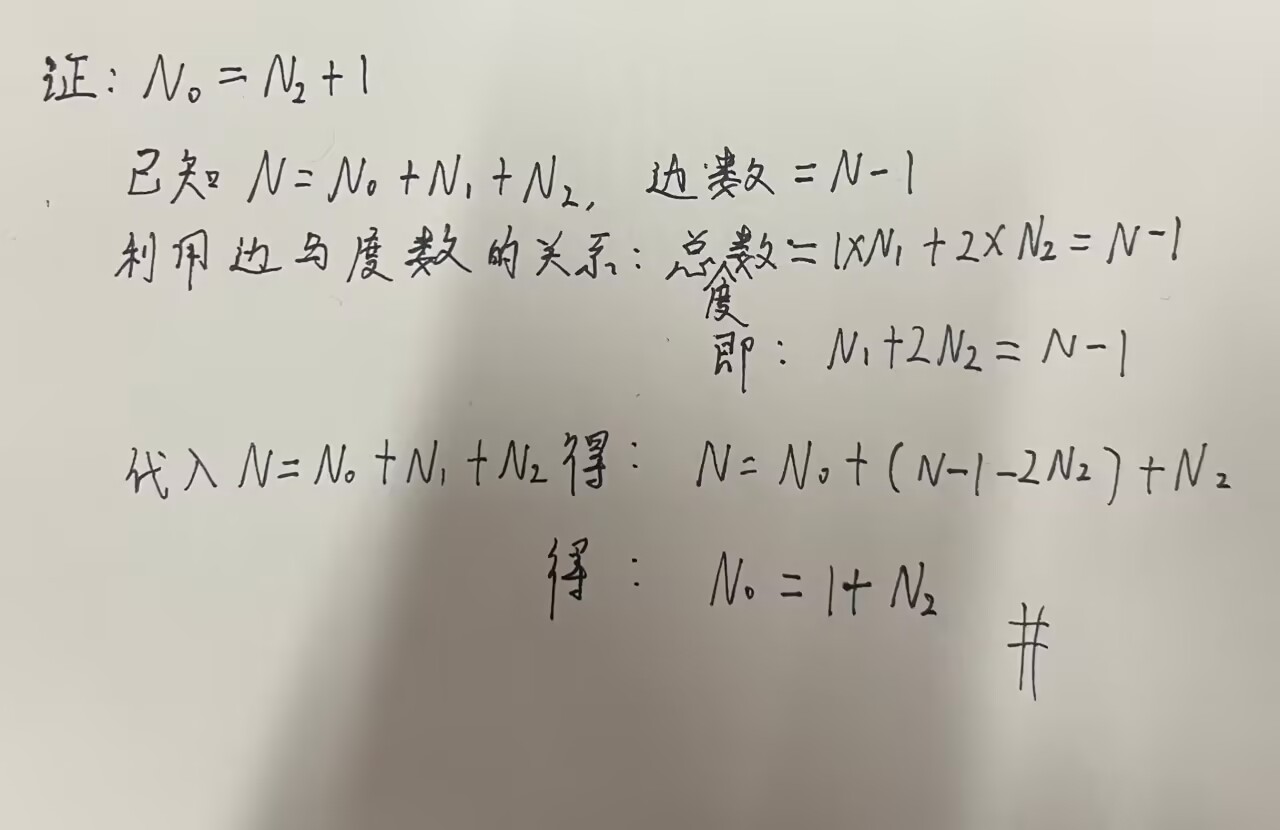 证: N₀ = N₂ + 1
已知 N = N₀ + N₁ + N₂, 边数 = N - 1
利用边与度数的关系: 总度数 = 1×N₁ + 2×N₂ = N - 1
即: N₁ + 2N₂ = N - 1
代入 N = N₀ + N₁ + N₂ 得: N = N₀ + (N - 1 - 2N₂) + N₂
得: N₀ = 1 + N₂ #